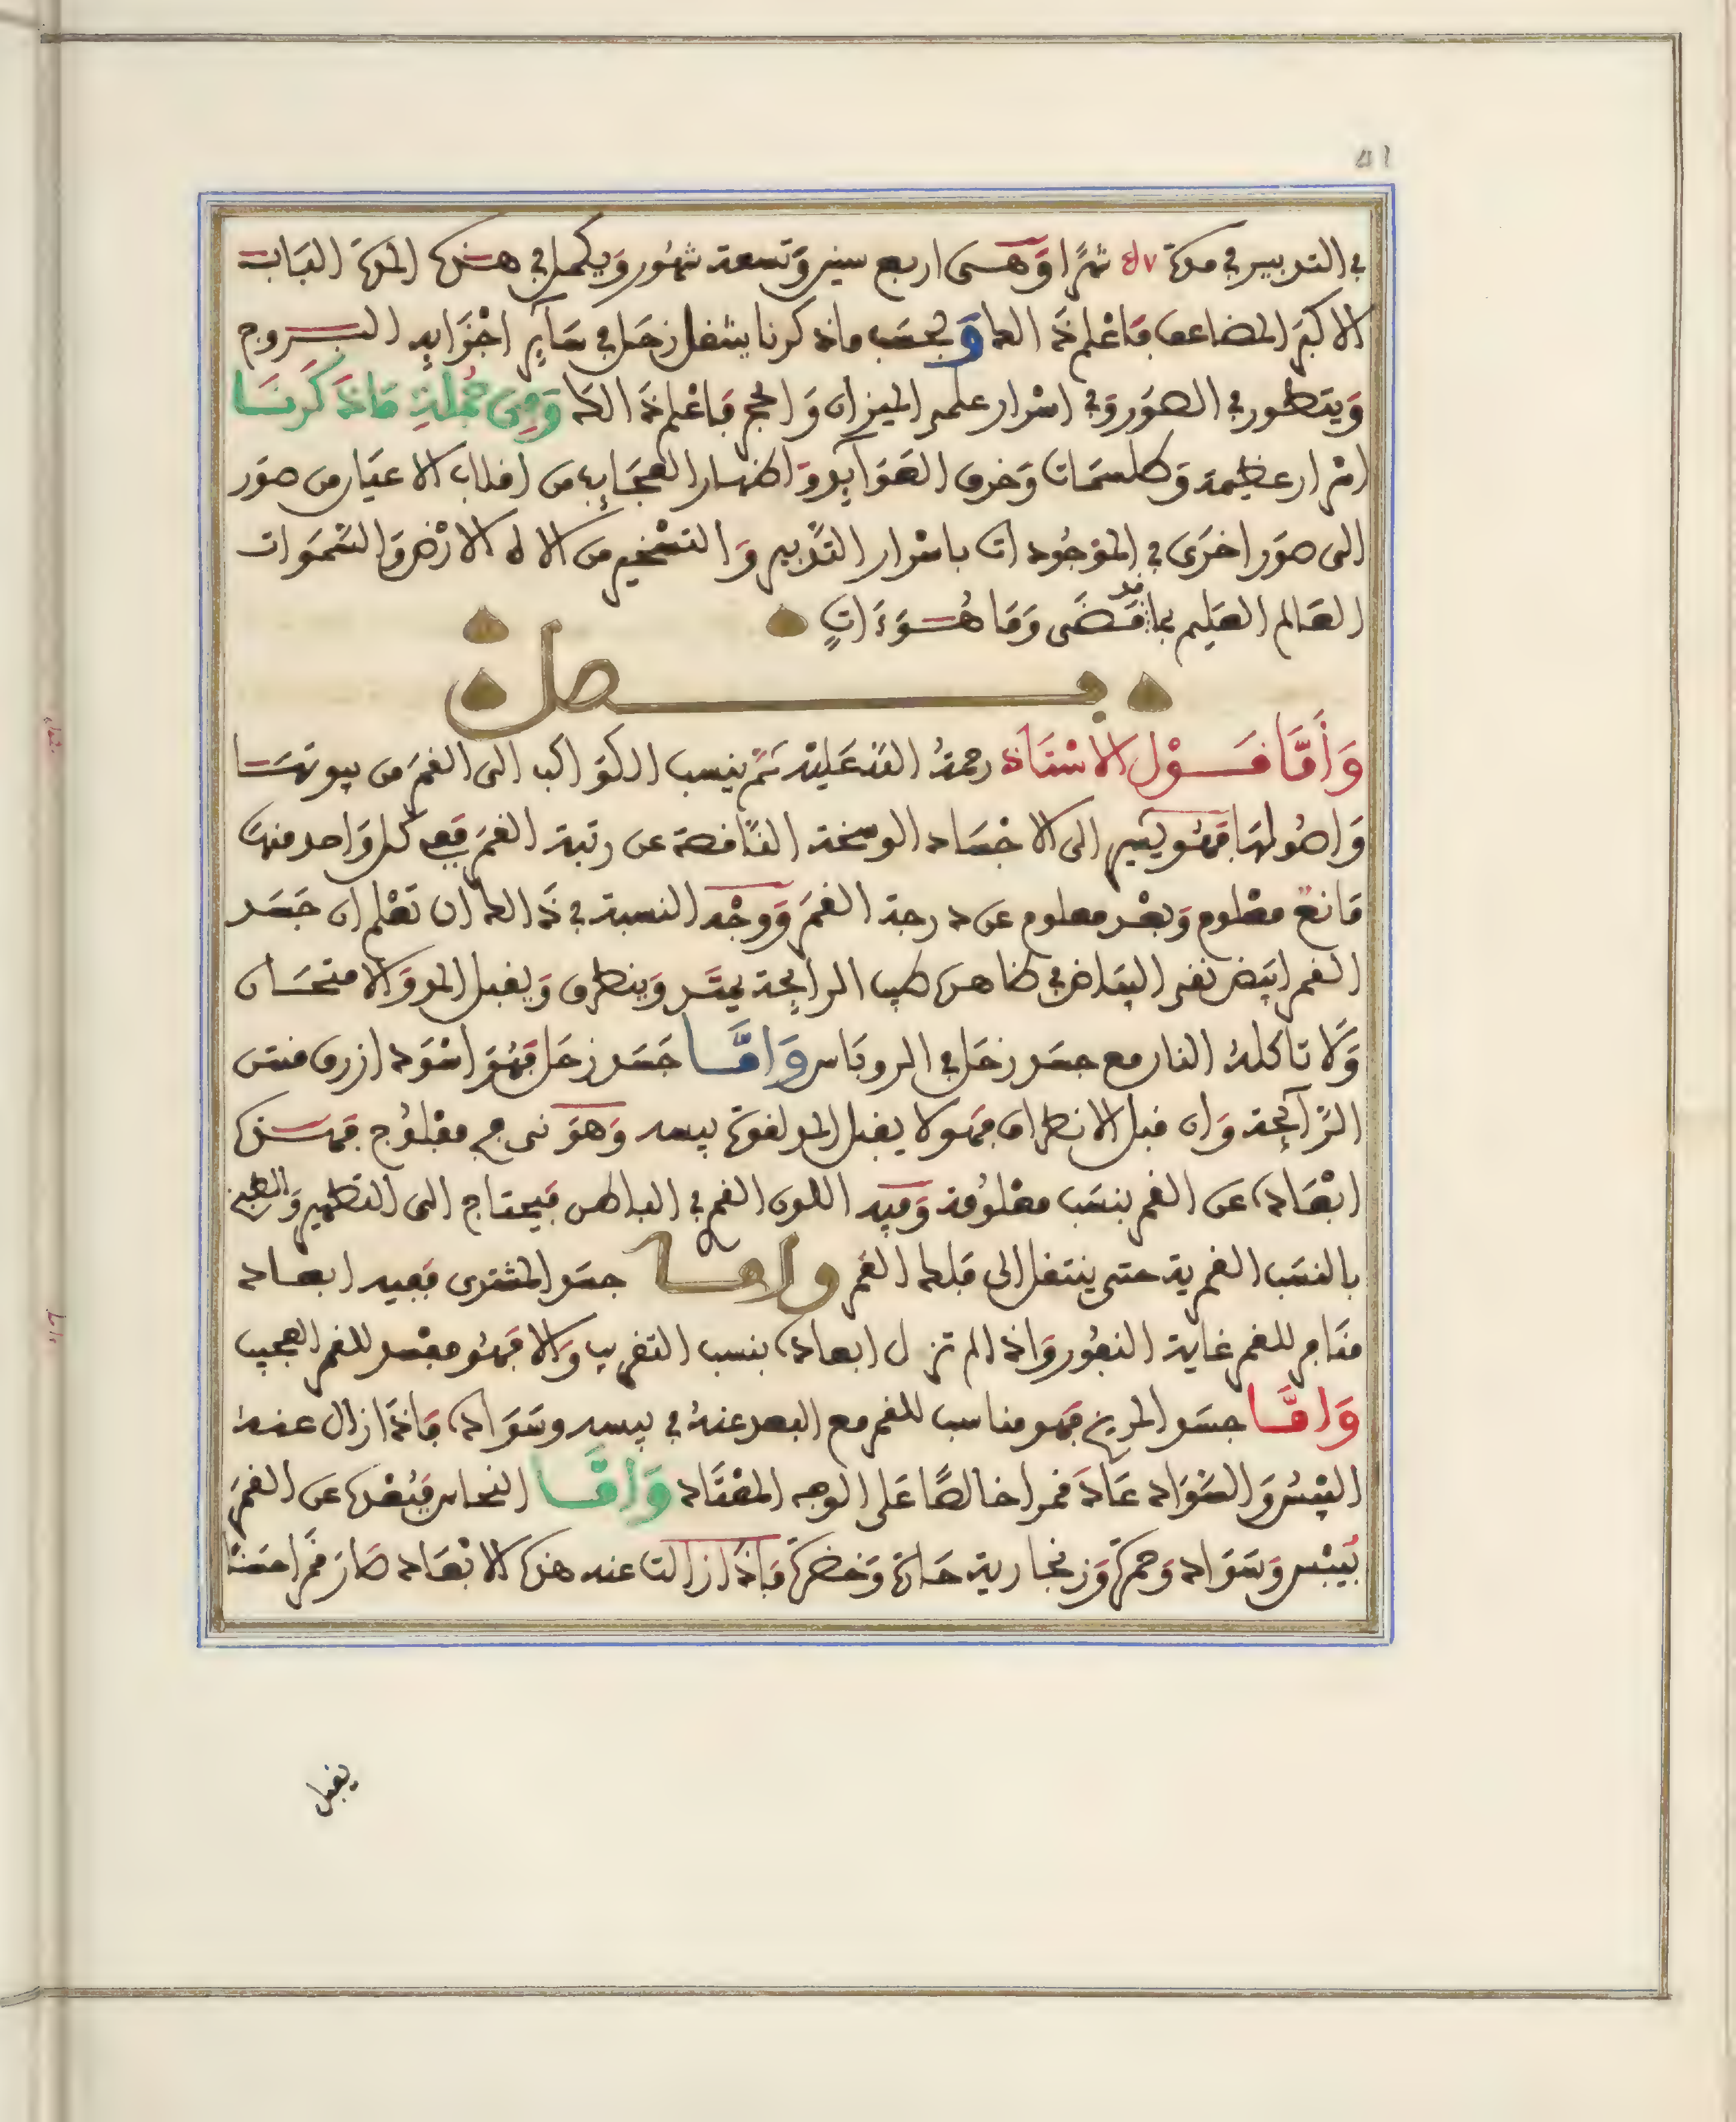 في التدبير في مدة ٥٧ شهرا وهي اربع سنين وتسعة شهور ويكمل في هذه المدة الباب
الاكبر المضاعف فاعلم ذالك وبحسب ما ذكرنا ينتقل زحل في ساير اجزايه البروج
ويتطور في الصور وفي اسرار علم الميزان والحجم فاعلم ذالك ومن جملة ما ذكرنا
اسرار عظيمة وطلسمات وخرق العوايد واظهار العجايب من اقلاب الاعيان من صور
الى صور اخرى في الموجودات باسرار التدبير والتسخير من الاله الارض والسموات
العالم العليم بما قد مضى وما هوءات
فصل
وأما قول الاستاذ رحمة الله عليه ثم ينسب الكواكب الى القمر من بيوتها
واصولها فهو يشير الى الاجساد الوسخة الناقصة عن رتبة القمر ففي كل واحد منها
مانع معلوم وبعد معلوم عن درجة القمر ووجه النسبة في ذالك ان تعلم ان جسد
القمر ابيض نقي البياض في ظاهره طيب الرايحة يمتد وينطرق ويقبل المد والامتحان
ولا تاكله النار مع جسد زحل في الروباس واما جسد زحل فهو اسود ازرق منتن
الرآيحة وان قبل الانطراق فهو لا يقبل المد لقوة يبسه وهو نى فج مفلوج فهذه
ابعاده عن القمر بنسب معلومة وفيه اللون القمر في الباطن فيحتاج الى التطهير والطبخ
بالنسب القمرية حتى ينتقل الى فلك القمر واما جسد المشترى ففيه ابعاد
منافر للقمر غاية النفور واذا لم تزل ابعاده بنسب التقريب والا فهو مفسد للقمر العجيب
واما جسد المريخ فهو مناسب للقمر مع البعد عنه في يبسه وسواده فاذا زال عنه
اليبس والسواد عاد قمرا خالصا على الوجه المعتاد واما النحاس فبعده عن القمر
بيبس وسواد وحمرة وزنجارية حادة وخضرة فاذا زالت عنه هذه الابعاد صار قمرا حسنا
يقبل